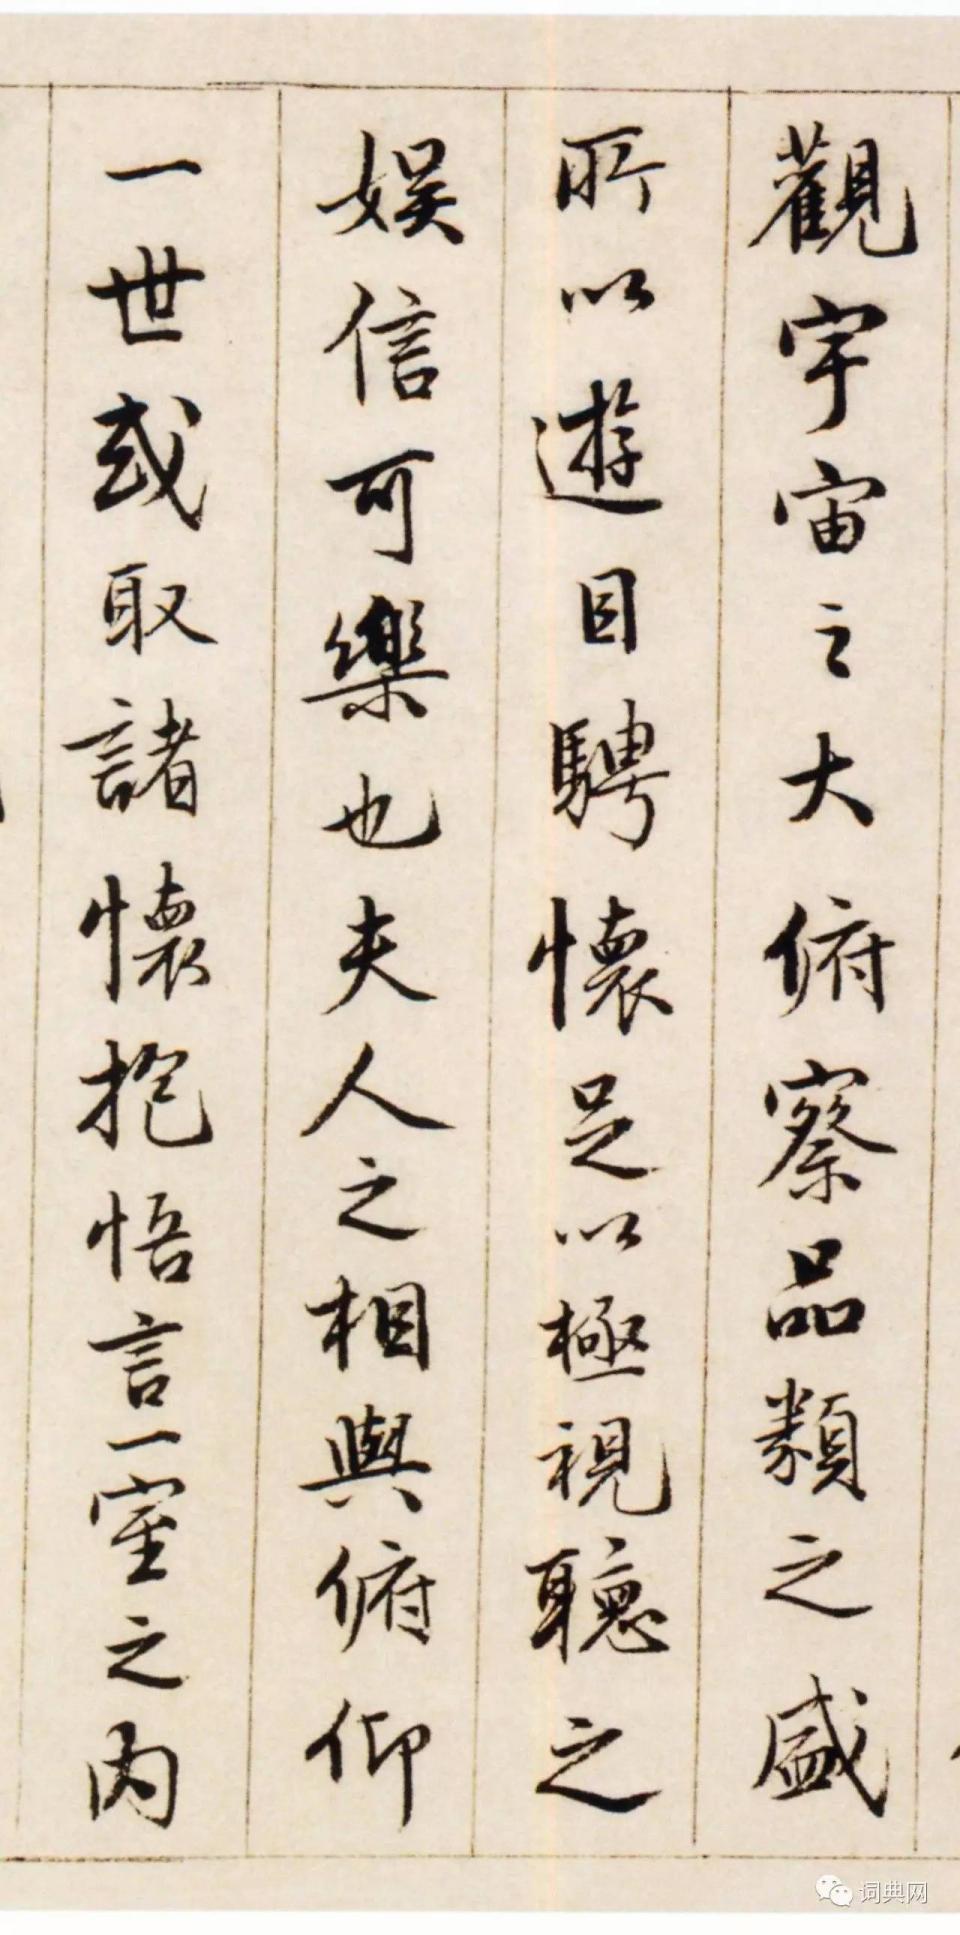 觀宇宙之大俯察品類之盛
所以遊目騁懷足以極視聽之
娱信可樂也夫人之相與俯仰
一世或取諸懷抱悟言一室之內
词典网